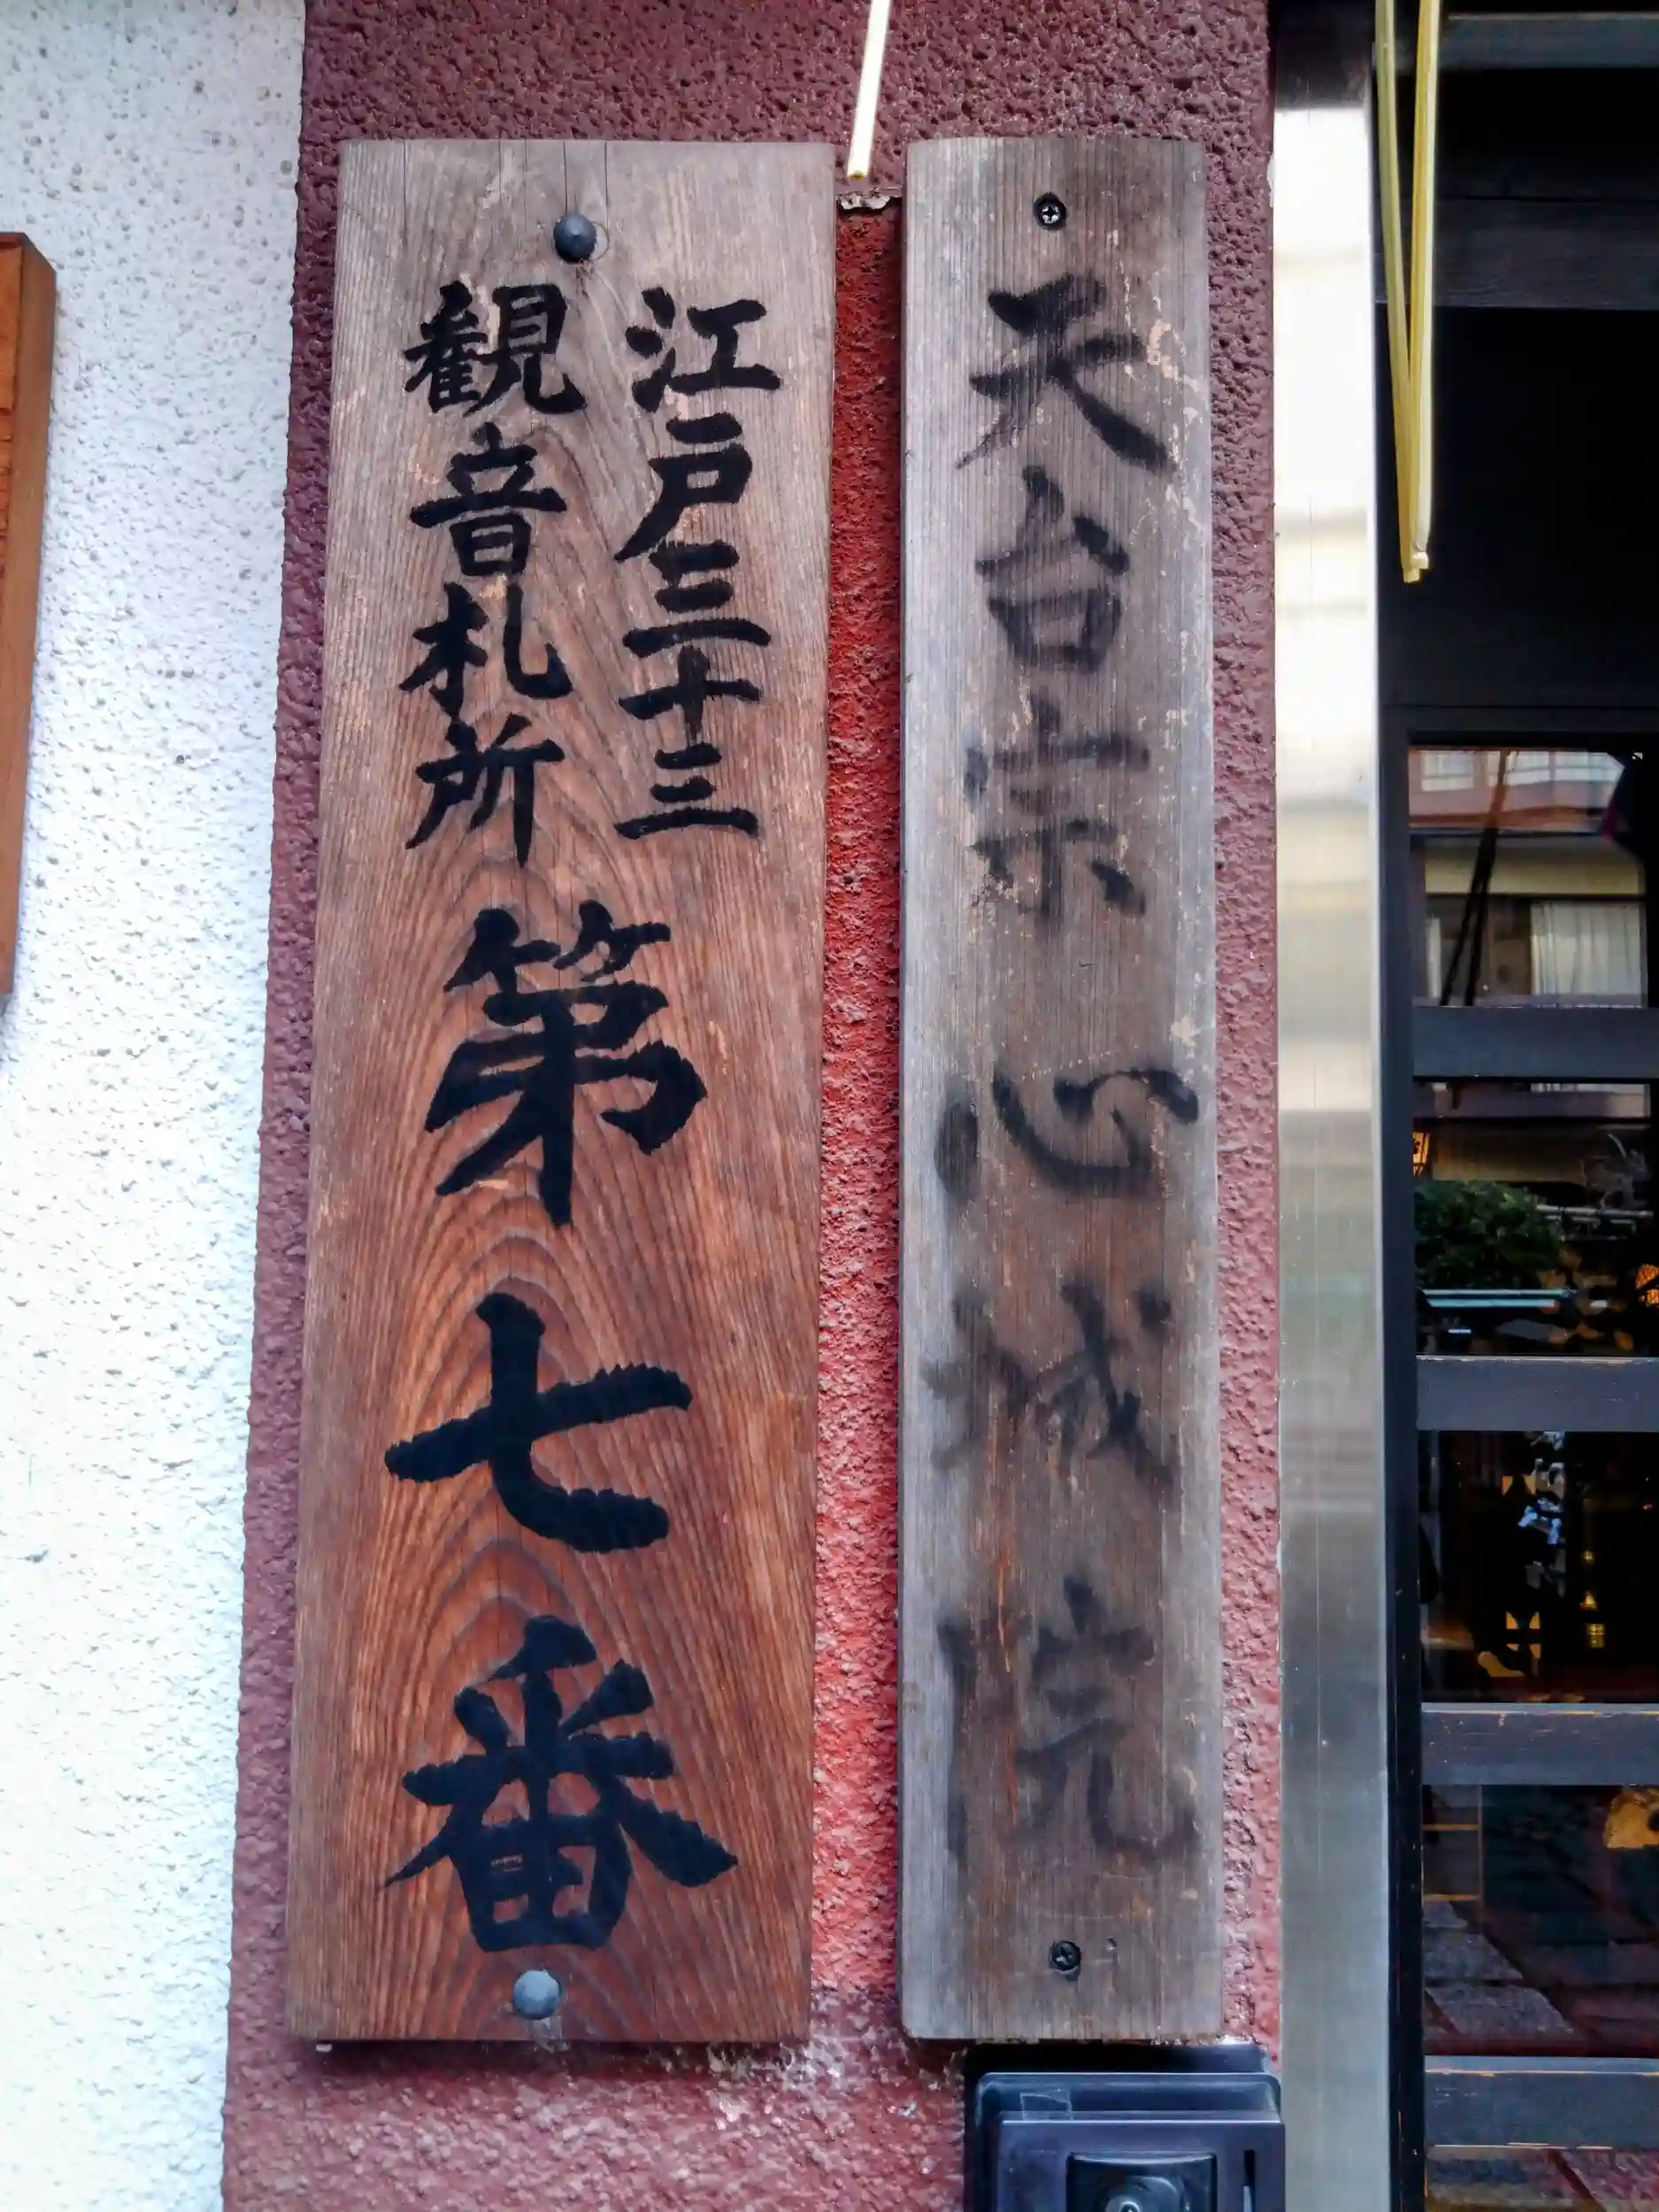 天台宗 心城院
江戸三十三
観音札所
第七番